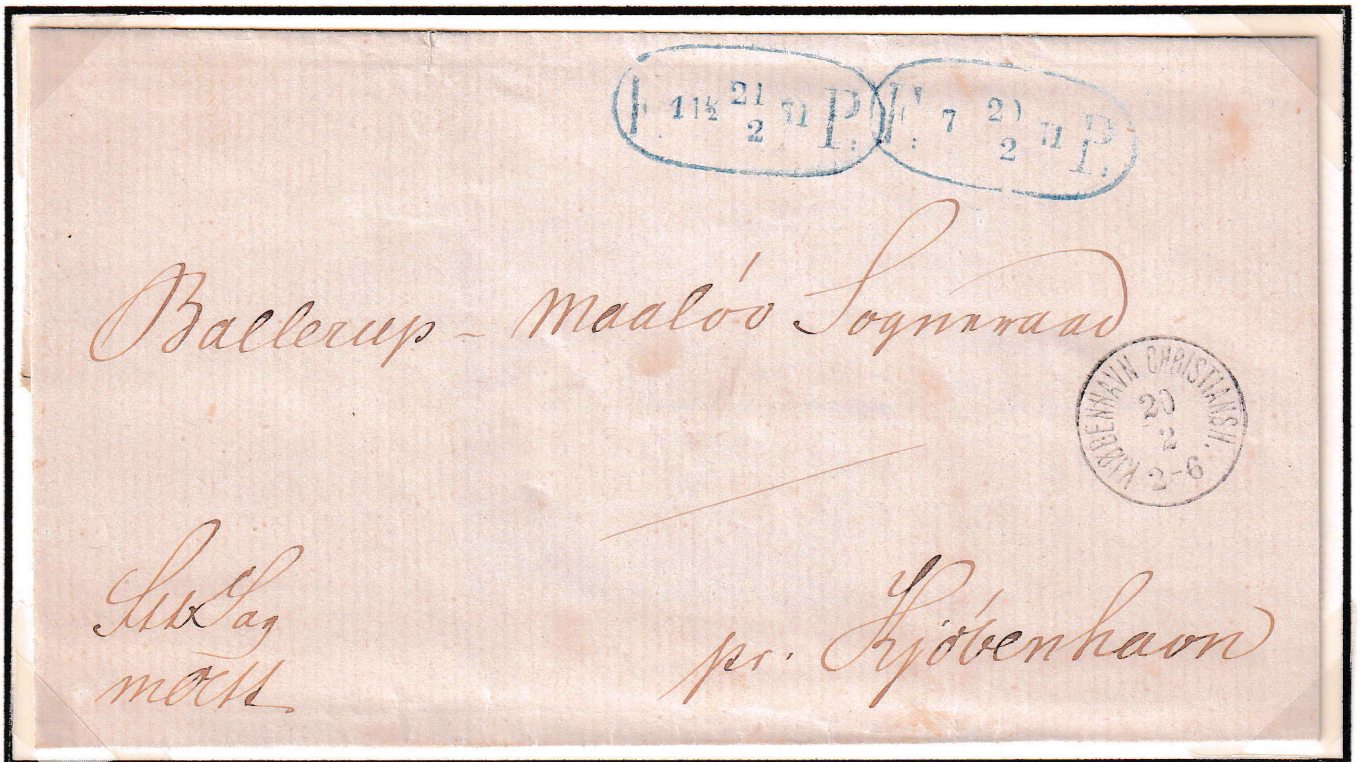 F. 11½ 21/2 71 P. F. 7 20/2 71 P.
Ballerup - Maalóv Sogneraad
KJØBENHAVN CHRISTIANSH.
20
2
2-6
Sag
pr. Kjóbenhavn